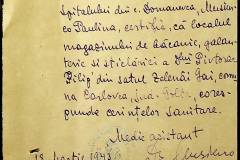 Spitalului din c. Domanovca, Meusien-
co Paulina, certific, că localul
magazinului de băcănie, galan-
terie si sticlărie a lui Pivtorac
Filip din satul Zelenâi Gai, comu-
na Carlovca, jud. cores-
punde cerințelor sanitare.
Medic asistent
18 Martie 1943